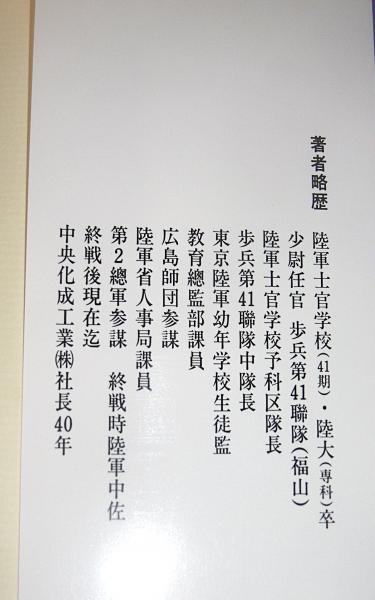 著者略歴
陸軍士官学校（41期）・陸大（専科）卒
少尉任官　歩兵第41聯隊（福山）
陸軍士官学校予科区隊長
歩兵第41聯隊中隊長
東京陸軍幼年学校生徒監
教育總監部課員
広島師団参謀
陸軍省人事局課員
第2總軍参謀　終戦時陸軍中佐
終戦後現在迄
中央化成工業㈱社長40年